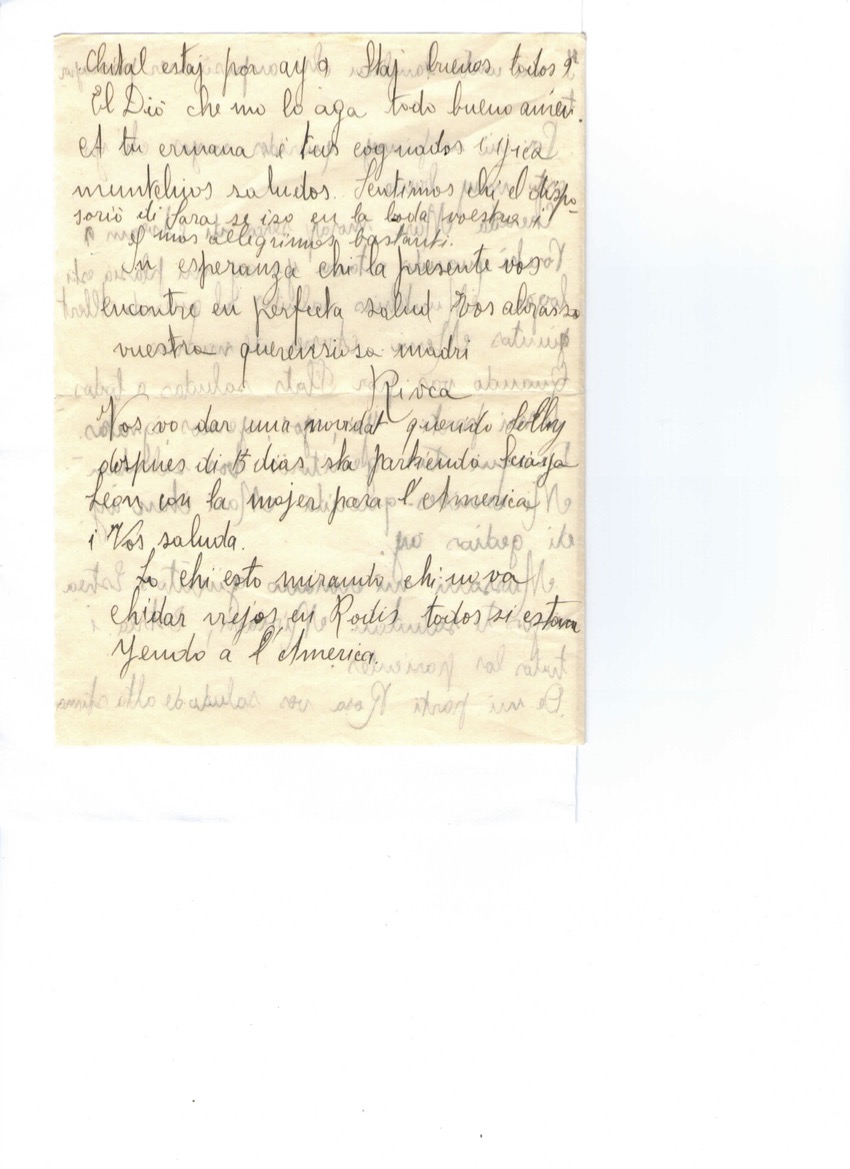 Chital estaj por ay? Staj buenos todos?
El Dió che mo lo aga todo bueno amén.
A tu ermana i tus cognados i ijica
muntchios saludos. Sentimos chi el dispo-
sorió di Sara se iso en la boda voestra i
mos allegrimos bastanti.
In esperanza chi la presente vos
encontre en perfecta salud Vos abrassa
vuestra querensiosa madri
Rivca
Vos vo dar una novidat querido Solly
después di 15 dias sta partiendo
León con la mojer para l'America
i Vos saluda.
Lo chi esto mirando chi no va
chidar viejos en Rodis todos si estan
yendo a l'America.